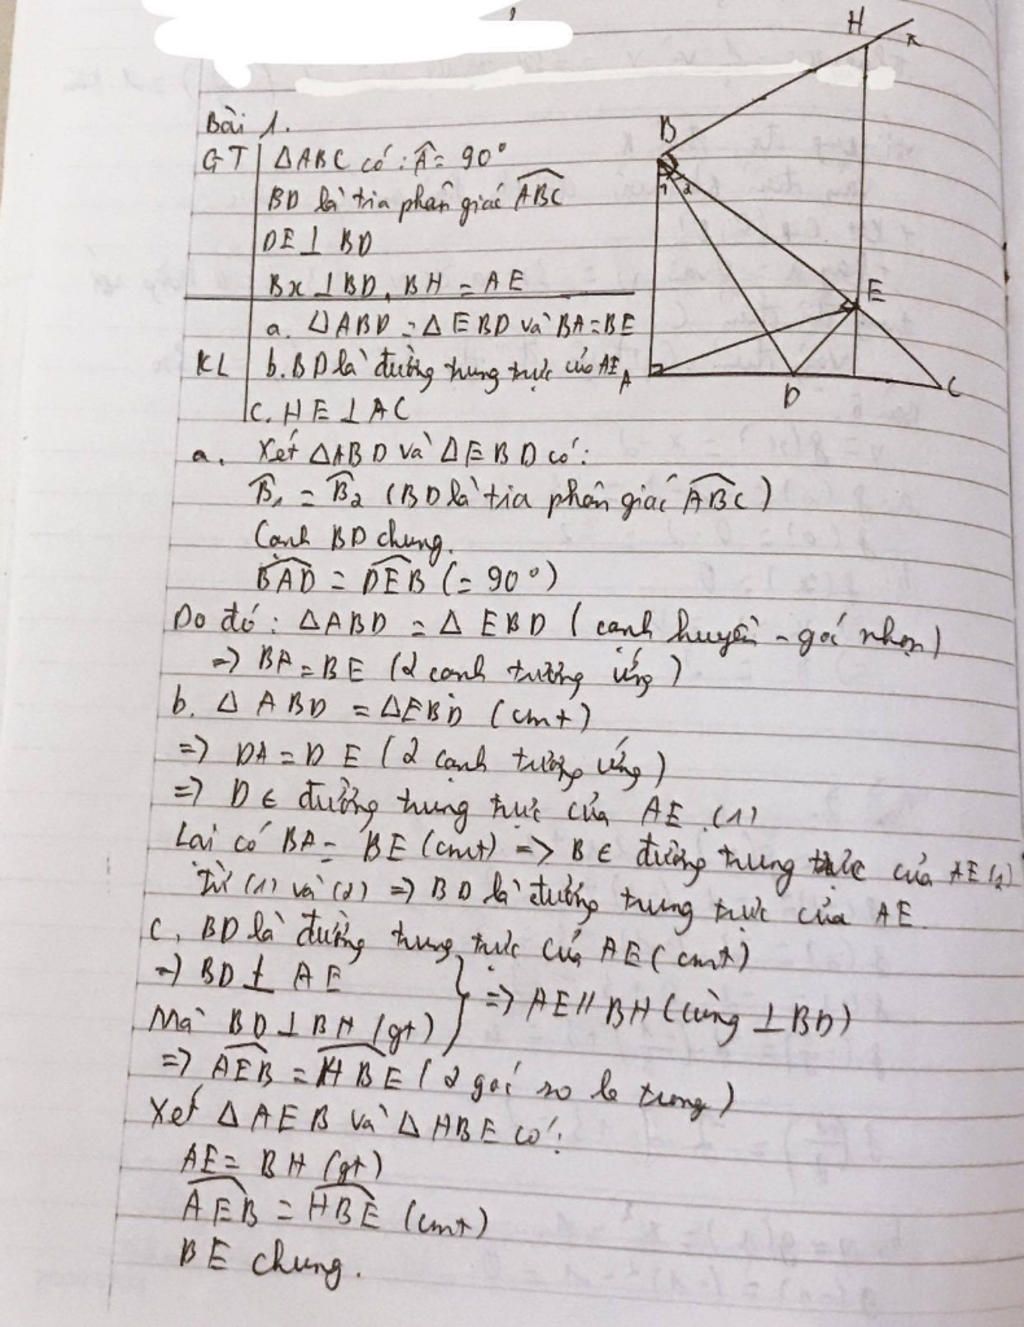 Bài 1.
GT ΔABC có: Â = 90°
BD là tia phân giác ABC
DE ⊥ BD
Bx ⊥ BD, BH = AE
a. ΔABD = ΔEBD và BA = BE
KL b. BD là đường trung trực của AE
c. HE ⊥ AC
H
x
B
1 2
E
A
D
C
a. Xét ΔABD và ΔEBD có:
B̂₁ = B̂₂ (BD là tia phân giác ABC)
Cạnh BD chung.
BAD = DEB (= 90°)
Do đó: ΔABD = ΔEBD (cạnh huyền - góc nhọn)
=> BA = BE (2 cạnh tương ứng)
b. ΔABD = ΔEBD (cmt)
=> DA = DE (2 cạnh tương ứng)
=> D ∈ đường trung trực của AE (1)
Lại có BA = BE (cmt) => B ∈ đường trung trực của AE (2)
Từ (1) và (2) => BD là đường trung trực của AE.
c, BD là đường trung trực của AE (cmt)
=> BD ⊥ AE
Mà BD ⊥ BH (gt) } => AE // BH (cùng ⊥ BD)
=> AEB = HBE (2 góc so le trong)
Xét ΔAEB và ΔHBE có:
AE = BH (gt)
AEB = HBE (cmt)
BE chung.